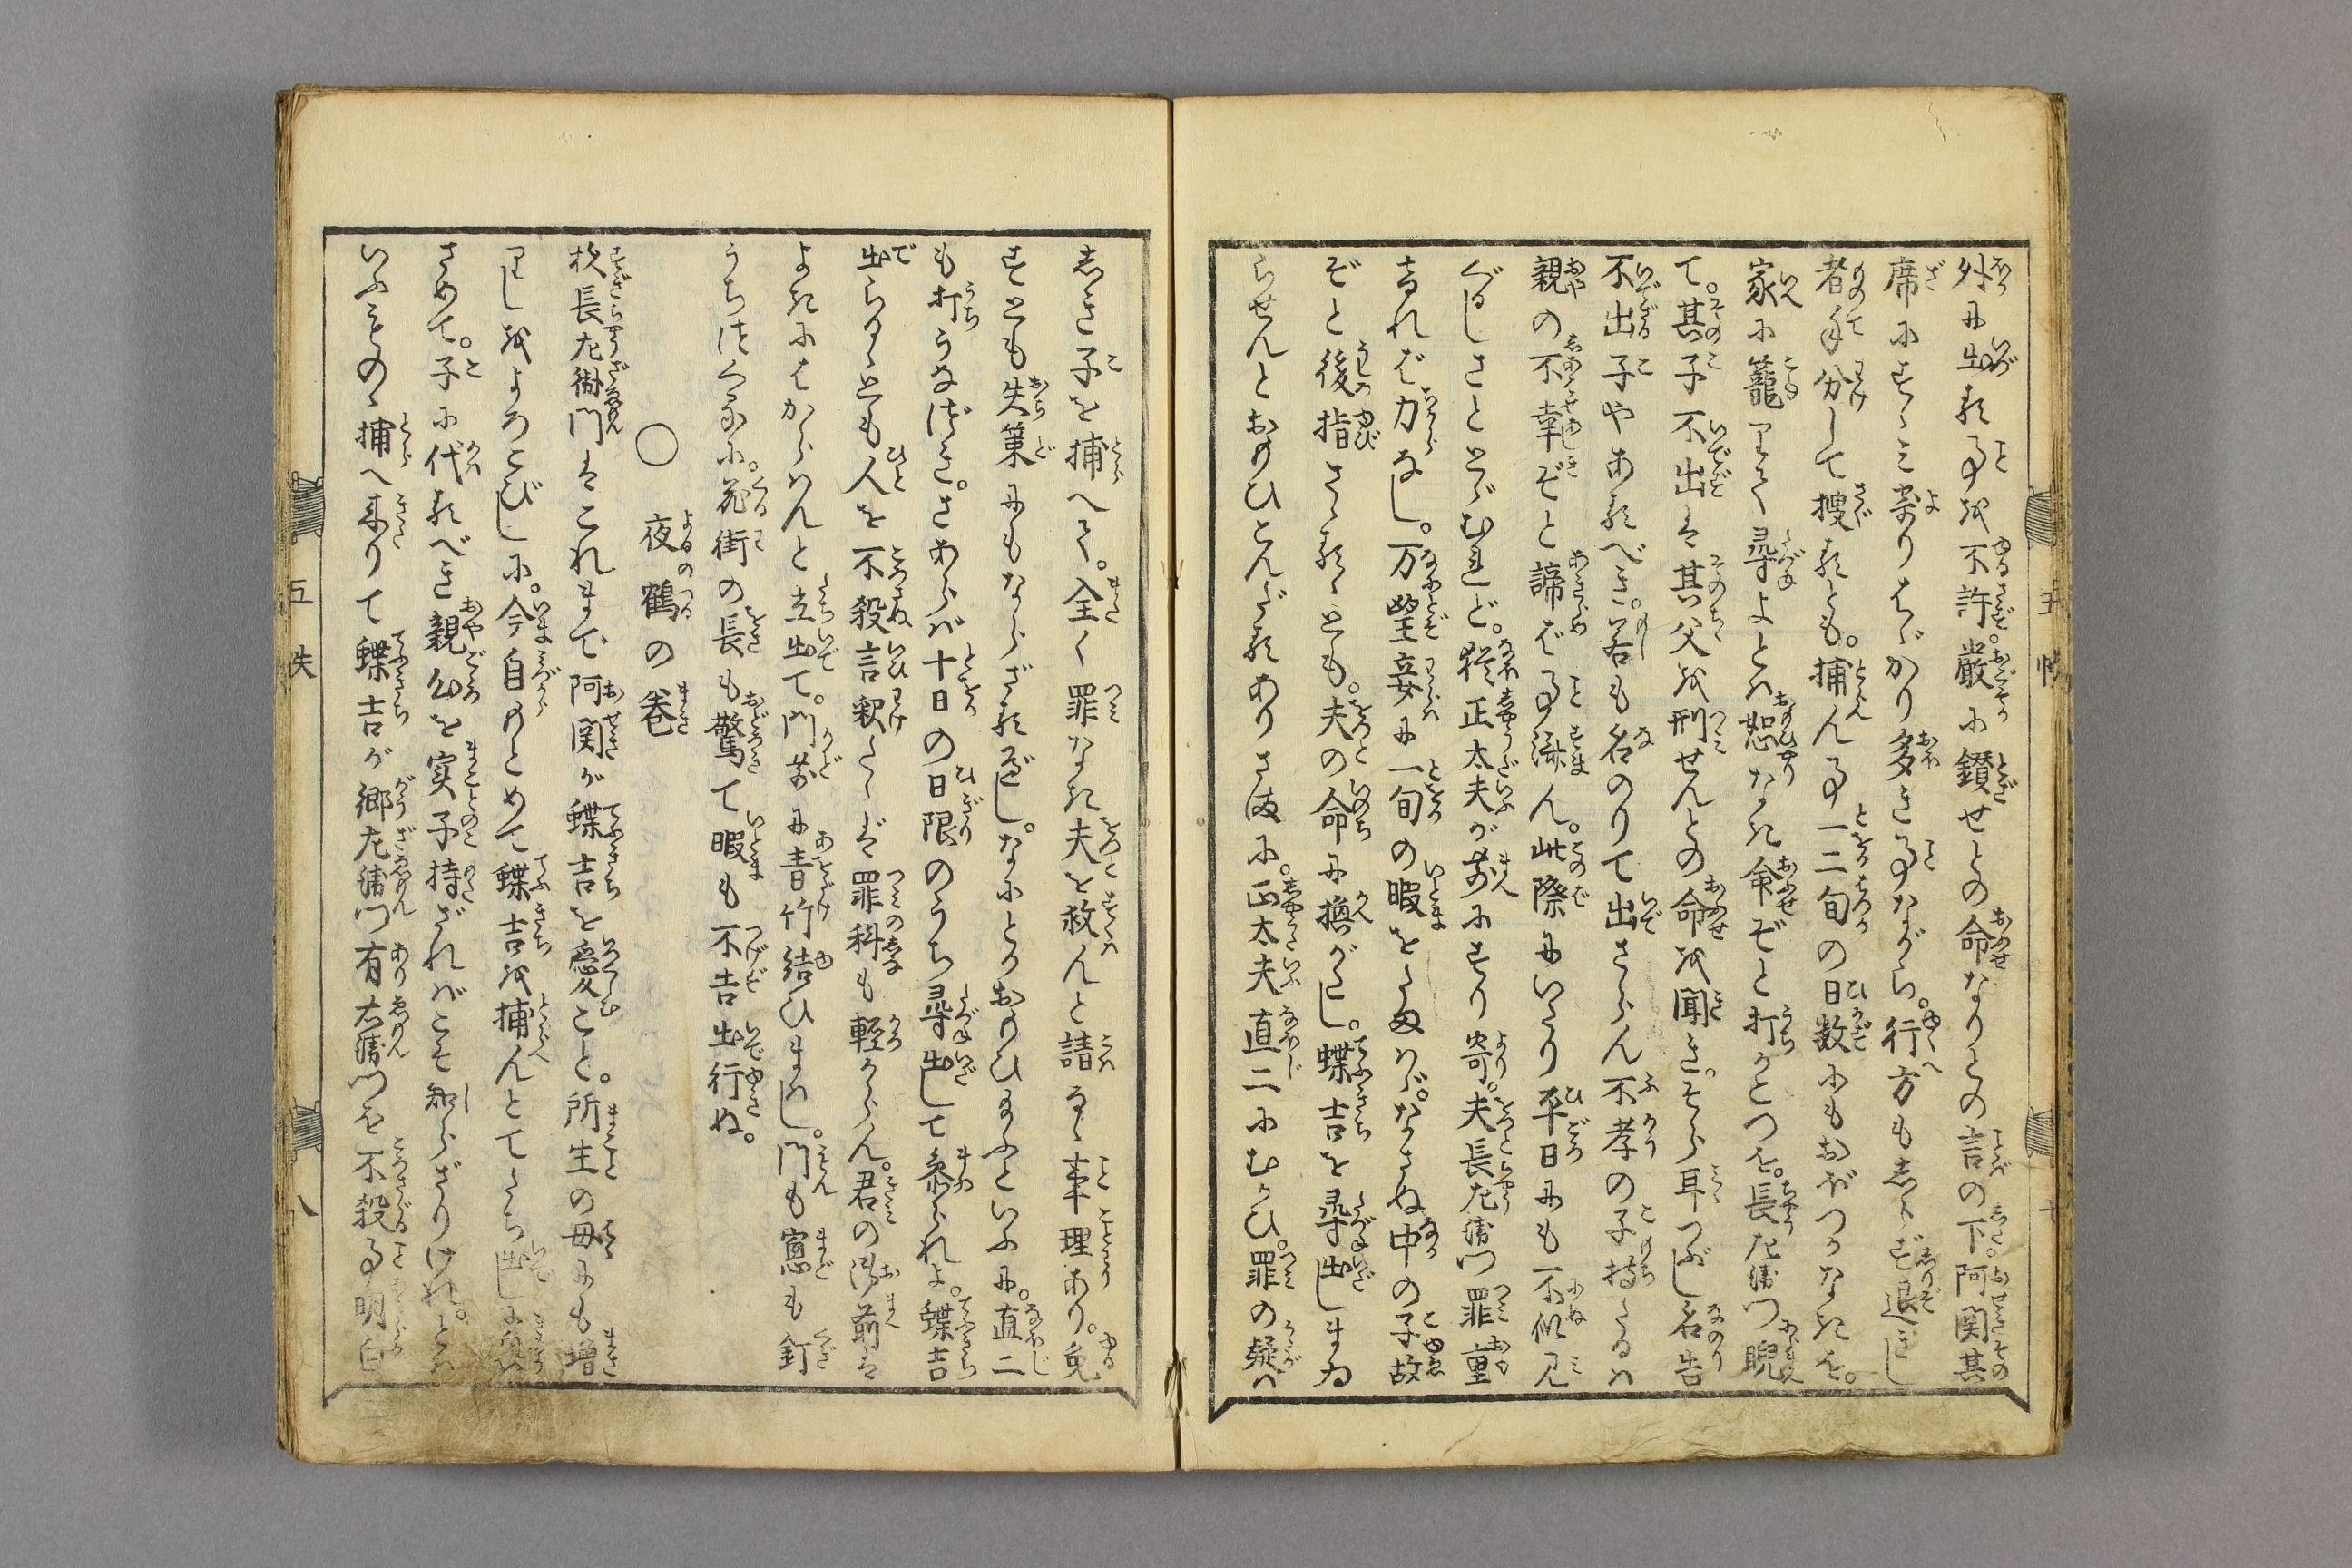 外に出る事を不許。厳に鎖せとの命なりとの言の下。阿関其
席にすゝみ寄りはゞかり多き事ながら。行方も志らず退きし
者手分して捜るとも。捕ん事一二旬の日数にもおぼつかなきを。
家に籠りて尋よとは恕なき命ぞと打かこつを。長左衛門睨
て。其子不出は其父を刑せんとの命を聞き。そら耳つぶし名告
不出子やあるべき。若も名のりて出さらん不孝の子持たるは
親の不幸ぞと諦ば事済ん。此際にいたり平日にも不似見
ぐるしさととゞむれど。猶正太夫が前にすり寄。夫長左衛門罪重
きれば力なし。万望妾に一旬の暇をたまはゞ。なさぬ中の子故
ぞと後指さゝるゝとも。夫の命に換がたし。蝶吉を尋出しまゐ
らせんとおもひこんだるありさまに。正太夫直二にむかひ。罪の疑は
志き子を捕へて。全く罪なき夫を救んと請るゝ事理あり。免
さずとも失策にもならざるべし。なにとかおもひ給ふといふに。直二
も打うなづき。さあらば十日の日限のうち尋出して参られよ。蝶吉
出らるゝとも人を不殺言釈たゝば罪科も軽からん。君の御前は
よきにはからはんと立出て。門前に青竹結ひまはし。門も窓も釘
うち付くるに。花街の長も驚て暇も不告出行ぬ。
○ 夜鶴の巻
杉長左衛門はこれまで阿関が蝶吉を愛こと。所生の母にも増
りしをよろこびしに。今自もとめて蝶吉を捕んとてたち出し
さめて。子に代るべき親心を実子持ざればこそ知らざりけれ。とは
いふものゝ捕へ来りて蝶吉が郷左衛門有右衛門を不殺事明白
五 八